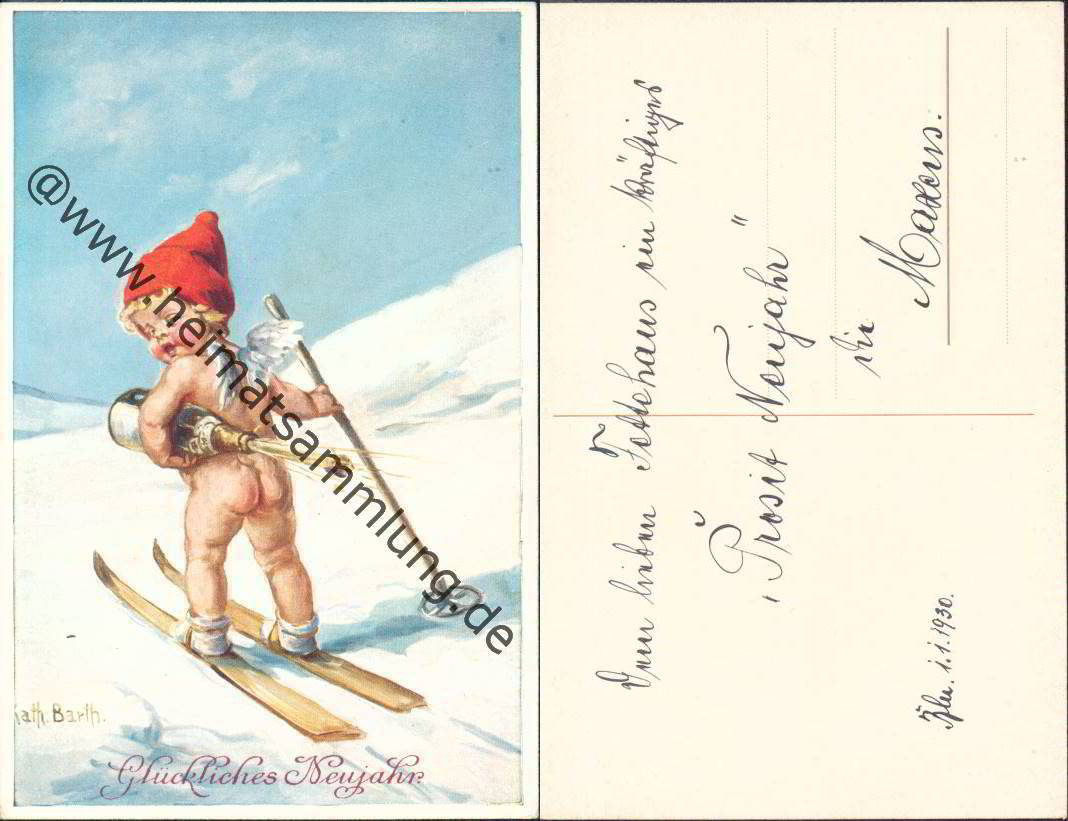 @www.heimatsammlung.de
Kath. Barth.
Glückliches Neujahr
Dem lieben Fettehaus ein kräftiges
"Prosit Neujahr"
die
Maxens.
1.1.1930.